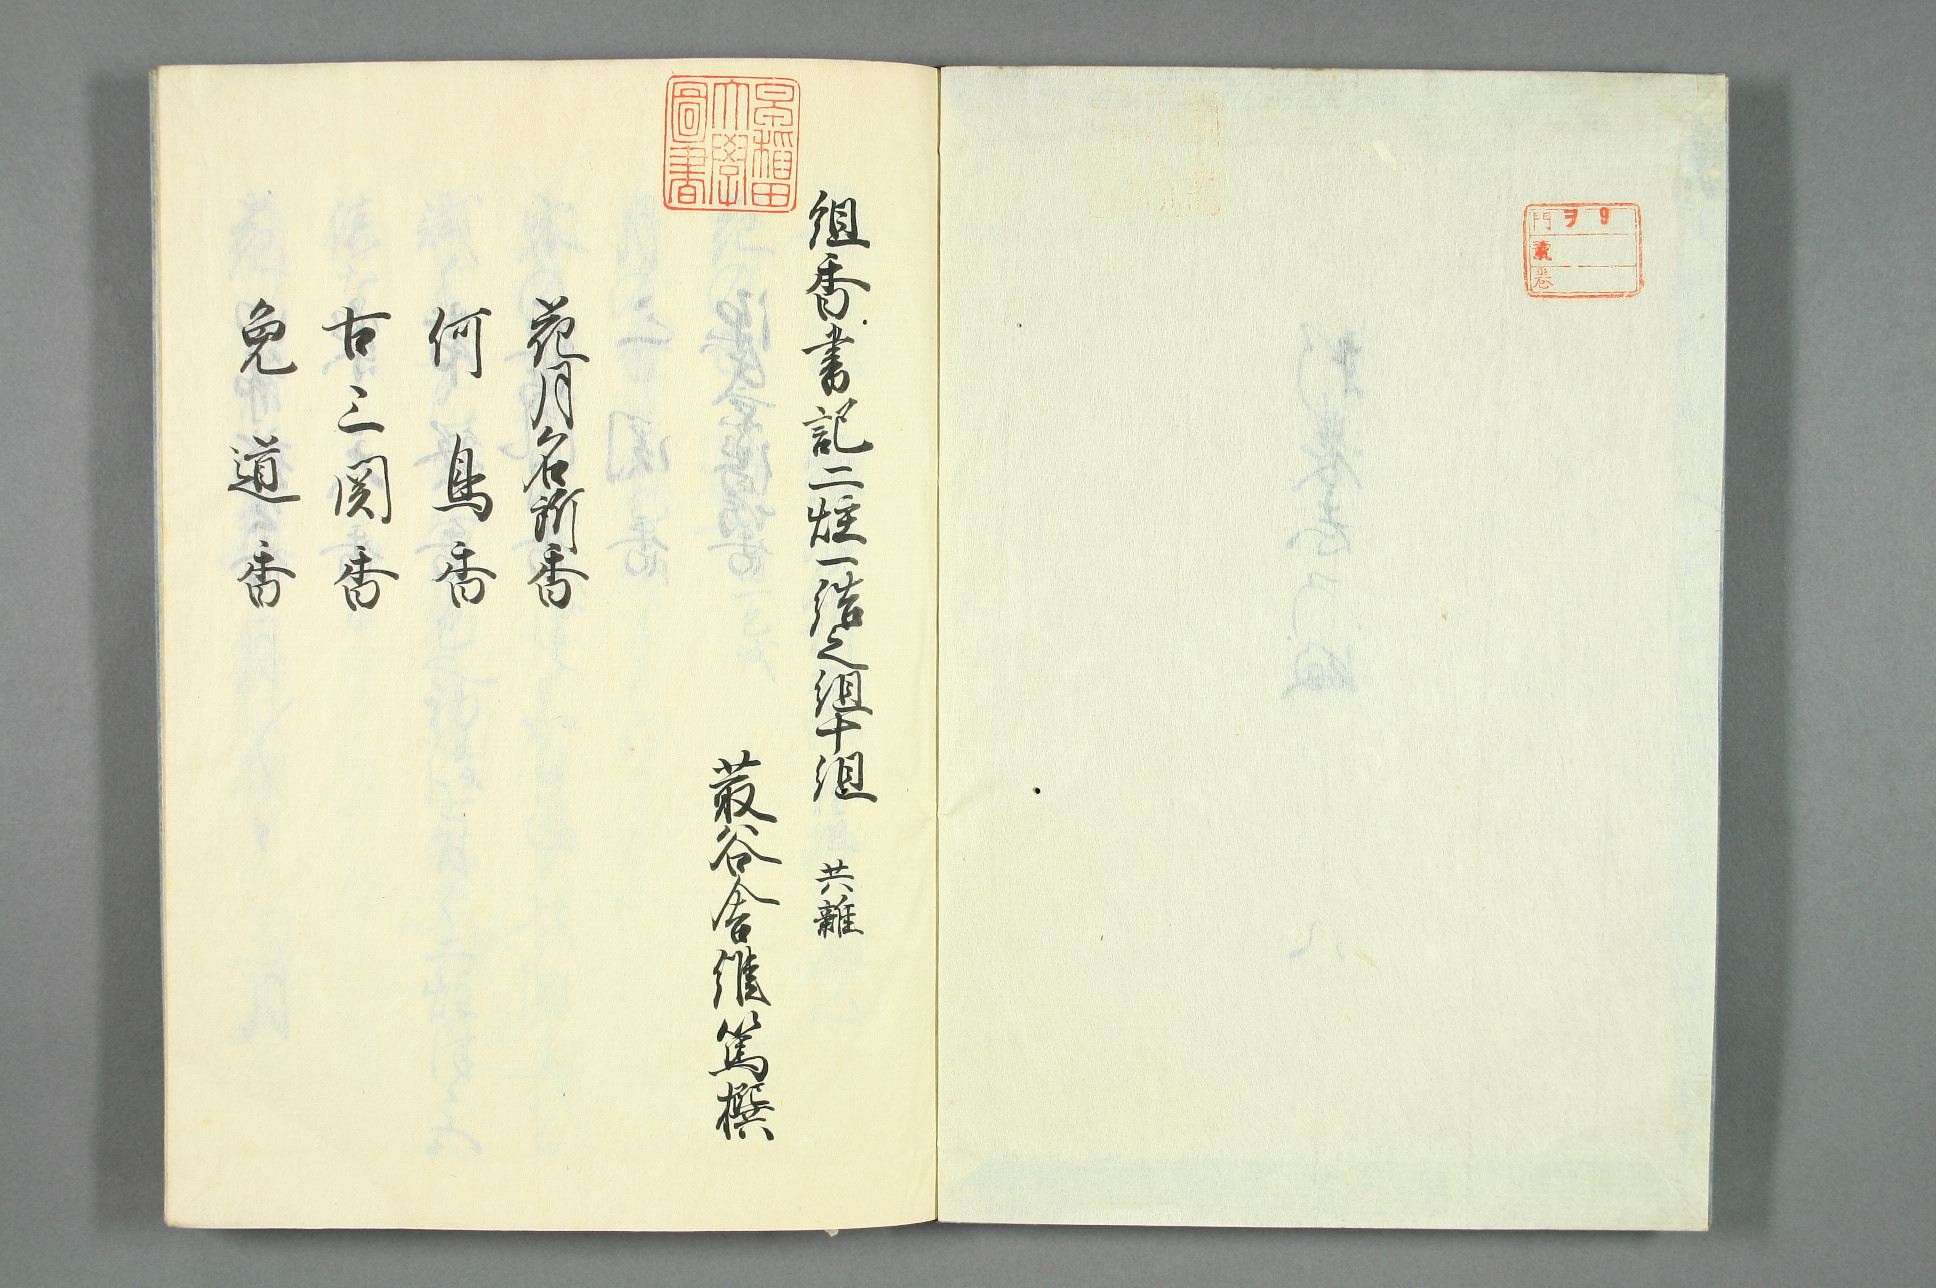 門 ヲ9
號
卷
早稲田
大學
圖書
組香書記二炷一結之組十組 共雛
菆谷舍維篤撰
花月名所香
何鳥香
古三関香
兔道香